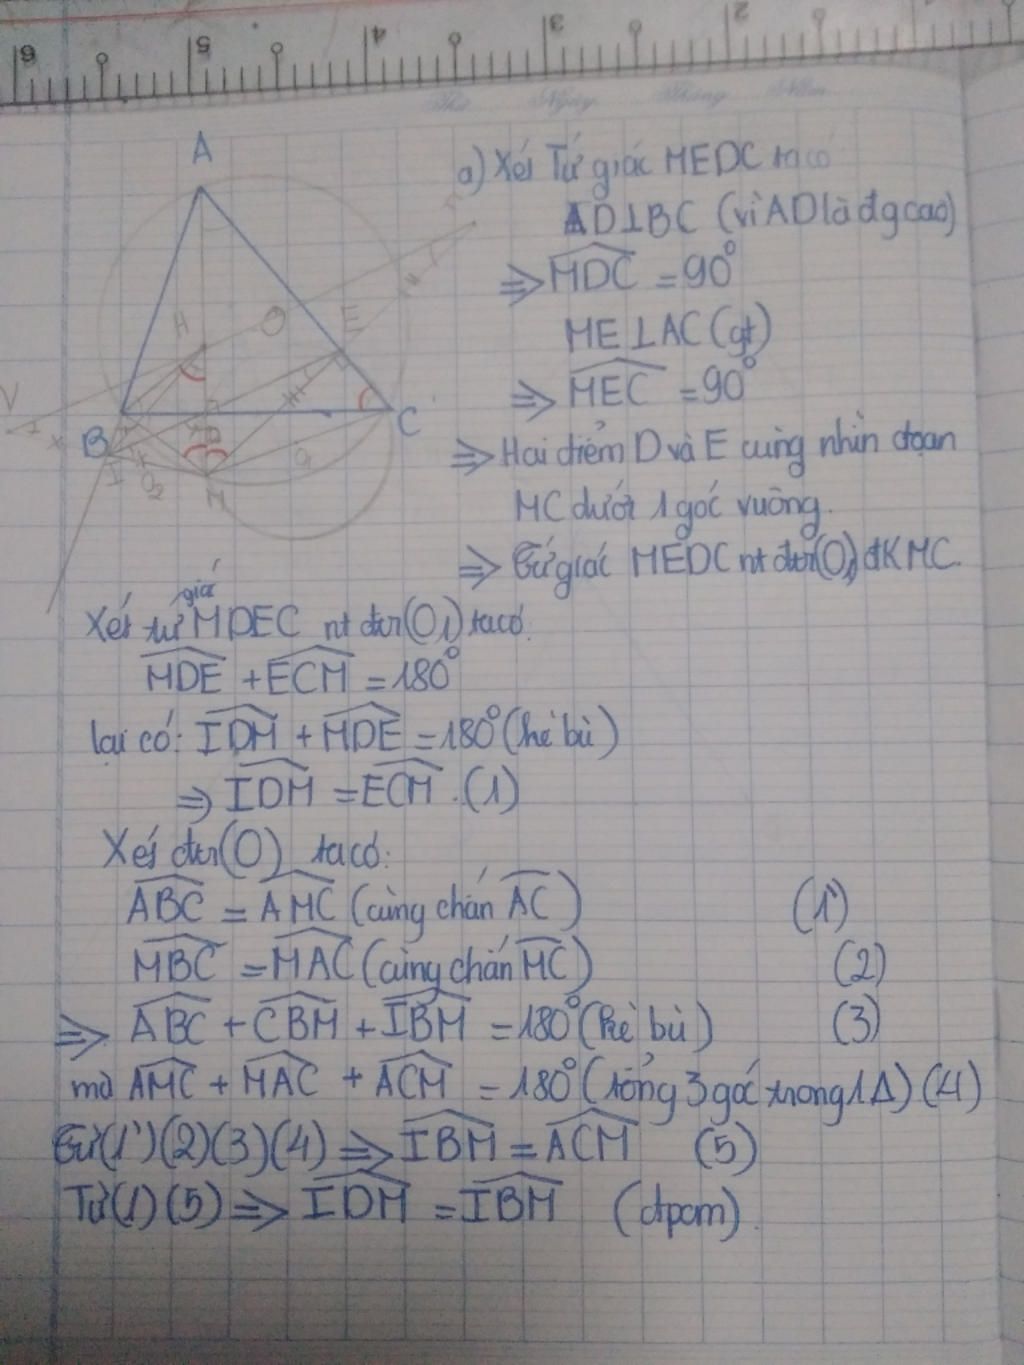 6 5 4 3 2
Thứ Ngày Tháng Năm
A
a) Xét Tứ giác MEDC ta có
AD⊥BC (vì AD là đg cao)
⇒ \widehat{MDC} = 90°
ME⊥AC (gt)
⇒ \widehat{MEC} = 90°
⇒ Hai điểm D và E cùng nhìn đoạn
MC dưới 1 góc vuông.
⇒ Tứ giác MEDC nt đtr(O₁) đK MC.
H
O
E
V
B
C
D
I
O₂
M
O₁
Xét tứ giác MDEC nt đtr(O₁) ta có.
\widehat{MDE} + \widehat{ECM} = 180°
lại có: \widehat{IDM} + \widehat{MDE} = 180° (kề bù)
⇒ \widehat{IDM} = \widehat{ECM}. (1)
Xét đtr(O) ta có:
\widehat{ABC} = \widehat{AMC} (cùng chắn \widehat{AC}) (1')
\widehat{MBC} = \widehat{MAC} (cùng chắn \widehat{MC}) (2)
⇒ \widehat{ABC} + \widehat{CBM} + \widehat{IBM} = 180° (kề bù) (3)
mà \widehat{AMC} + \widehat{MAC} + \widehat{ACM} = 180° (tổng 3 góc trong 1 Δ) (4)
Từ (1') (2) (3) (4) ⇒ \widehat{IBM} = \widehat{ACM} (5)
Từ (1) (5) ⇒ \widehat{IDM} = \widehat{IBM} (đpcm).